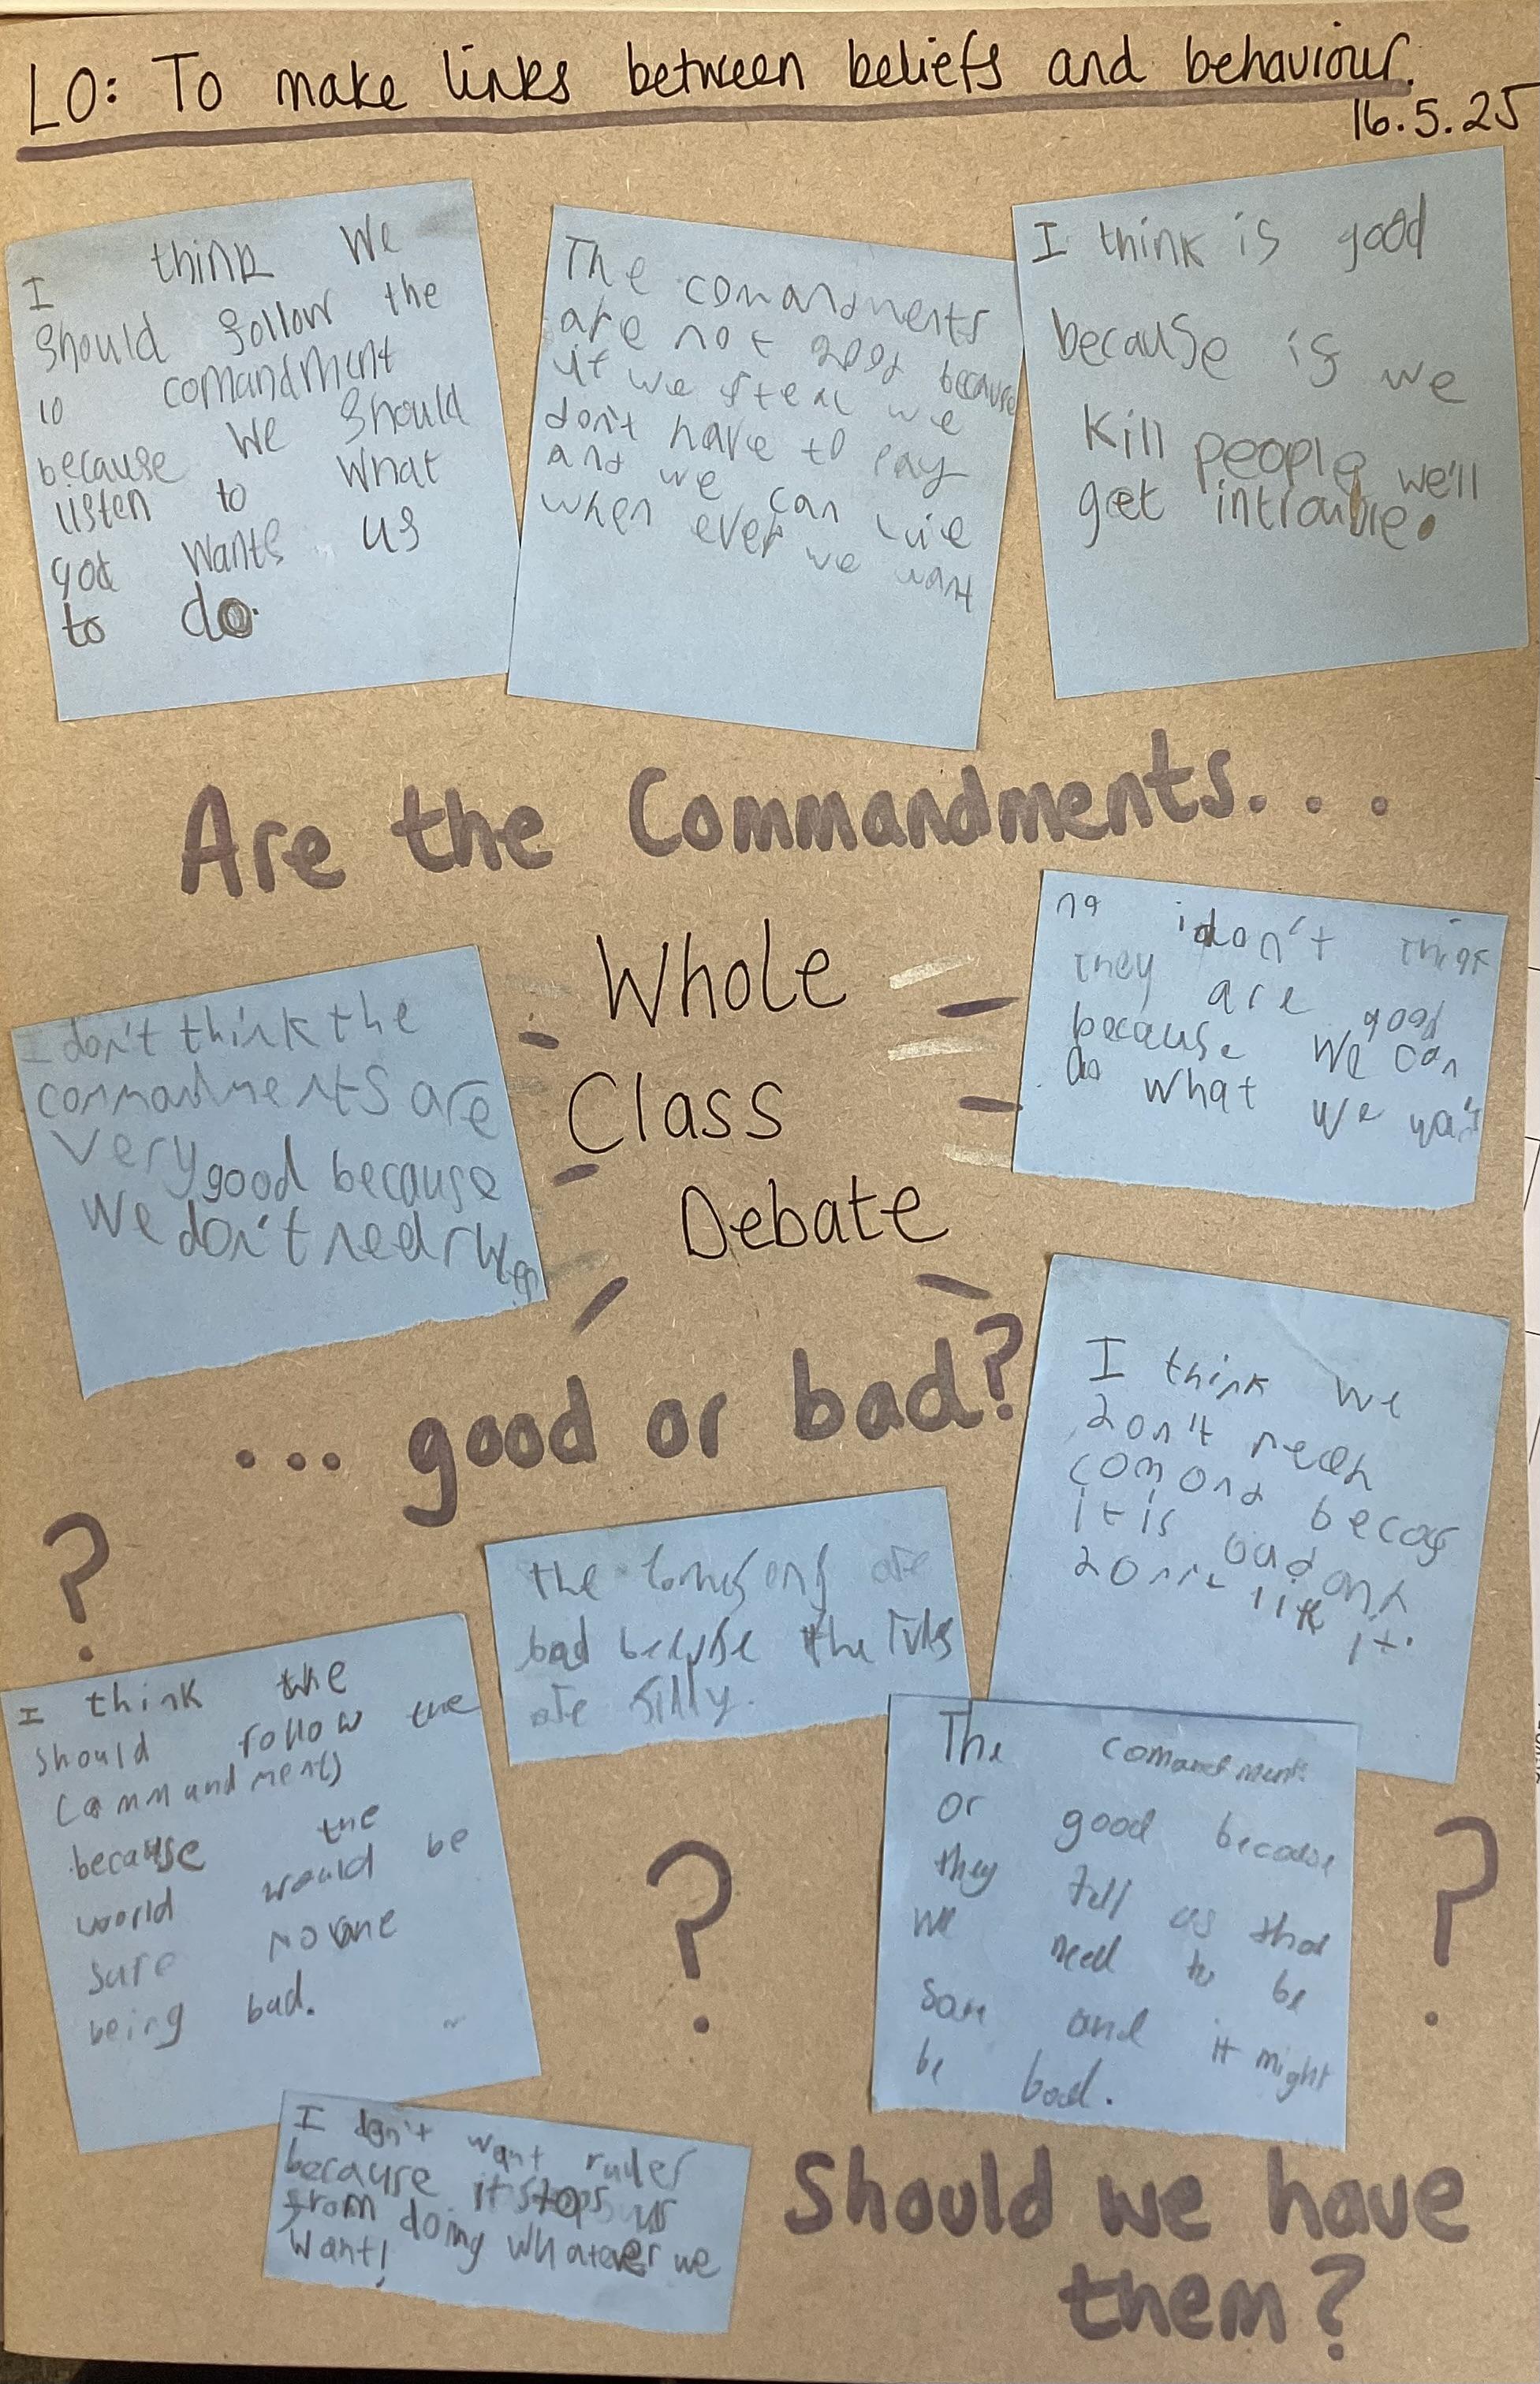 LO: To make links between beliefs and behaviour.
16.5.25
I think We
should follow the
10 comandment
because we should
listen to what
god wants us
to do.
The comandments
are not good because
if we steal we
don't have to pay
and we can
when ever we want
I think is good
because is we
kill people we'll
get introuble.
Are the Commandments...
Whole
Class
Debate
no i don't think
they are good
because we can
do what we want
I don't think the
commandments are
very good because
we don't need
... good or bad?
I think we
don't need
comand becos
it is bad
don't like it.
?
the are
bad because the rules
are silly.
I think the
should follow the
commandments
because the
world would be
safe no one
being bad.
The comandments
or good because
they tell us that
we need to be
and it might
be bad.
?
?
I don't want rules
because it stops us
from doing whatever we
want!
Should we have
them?